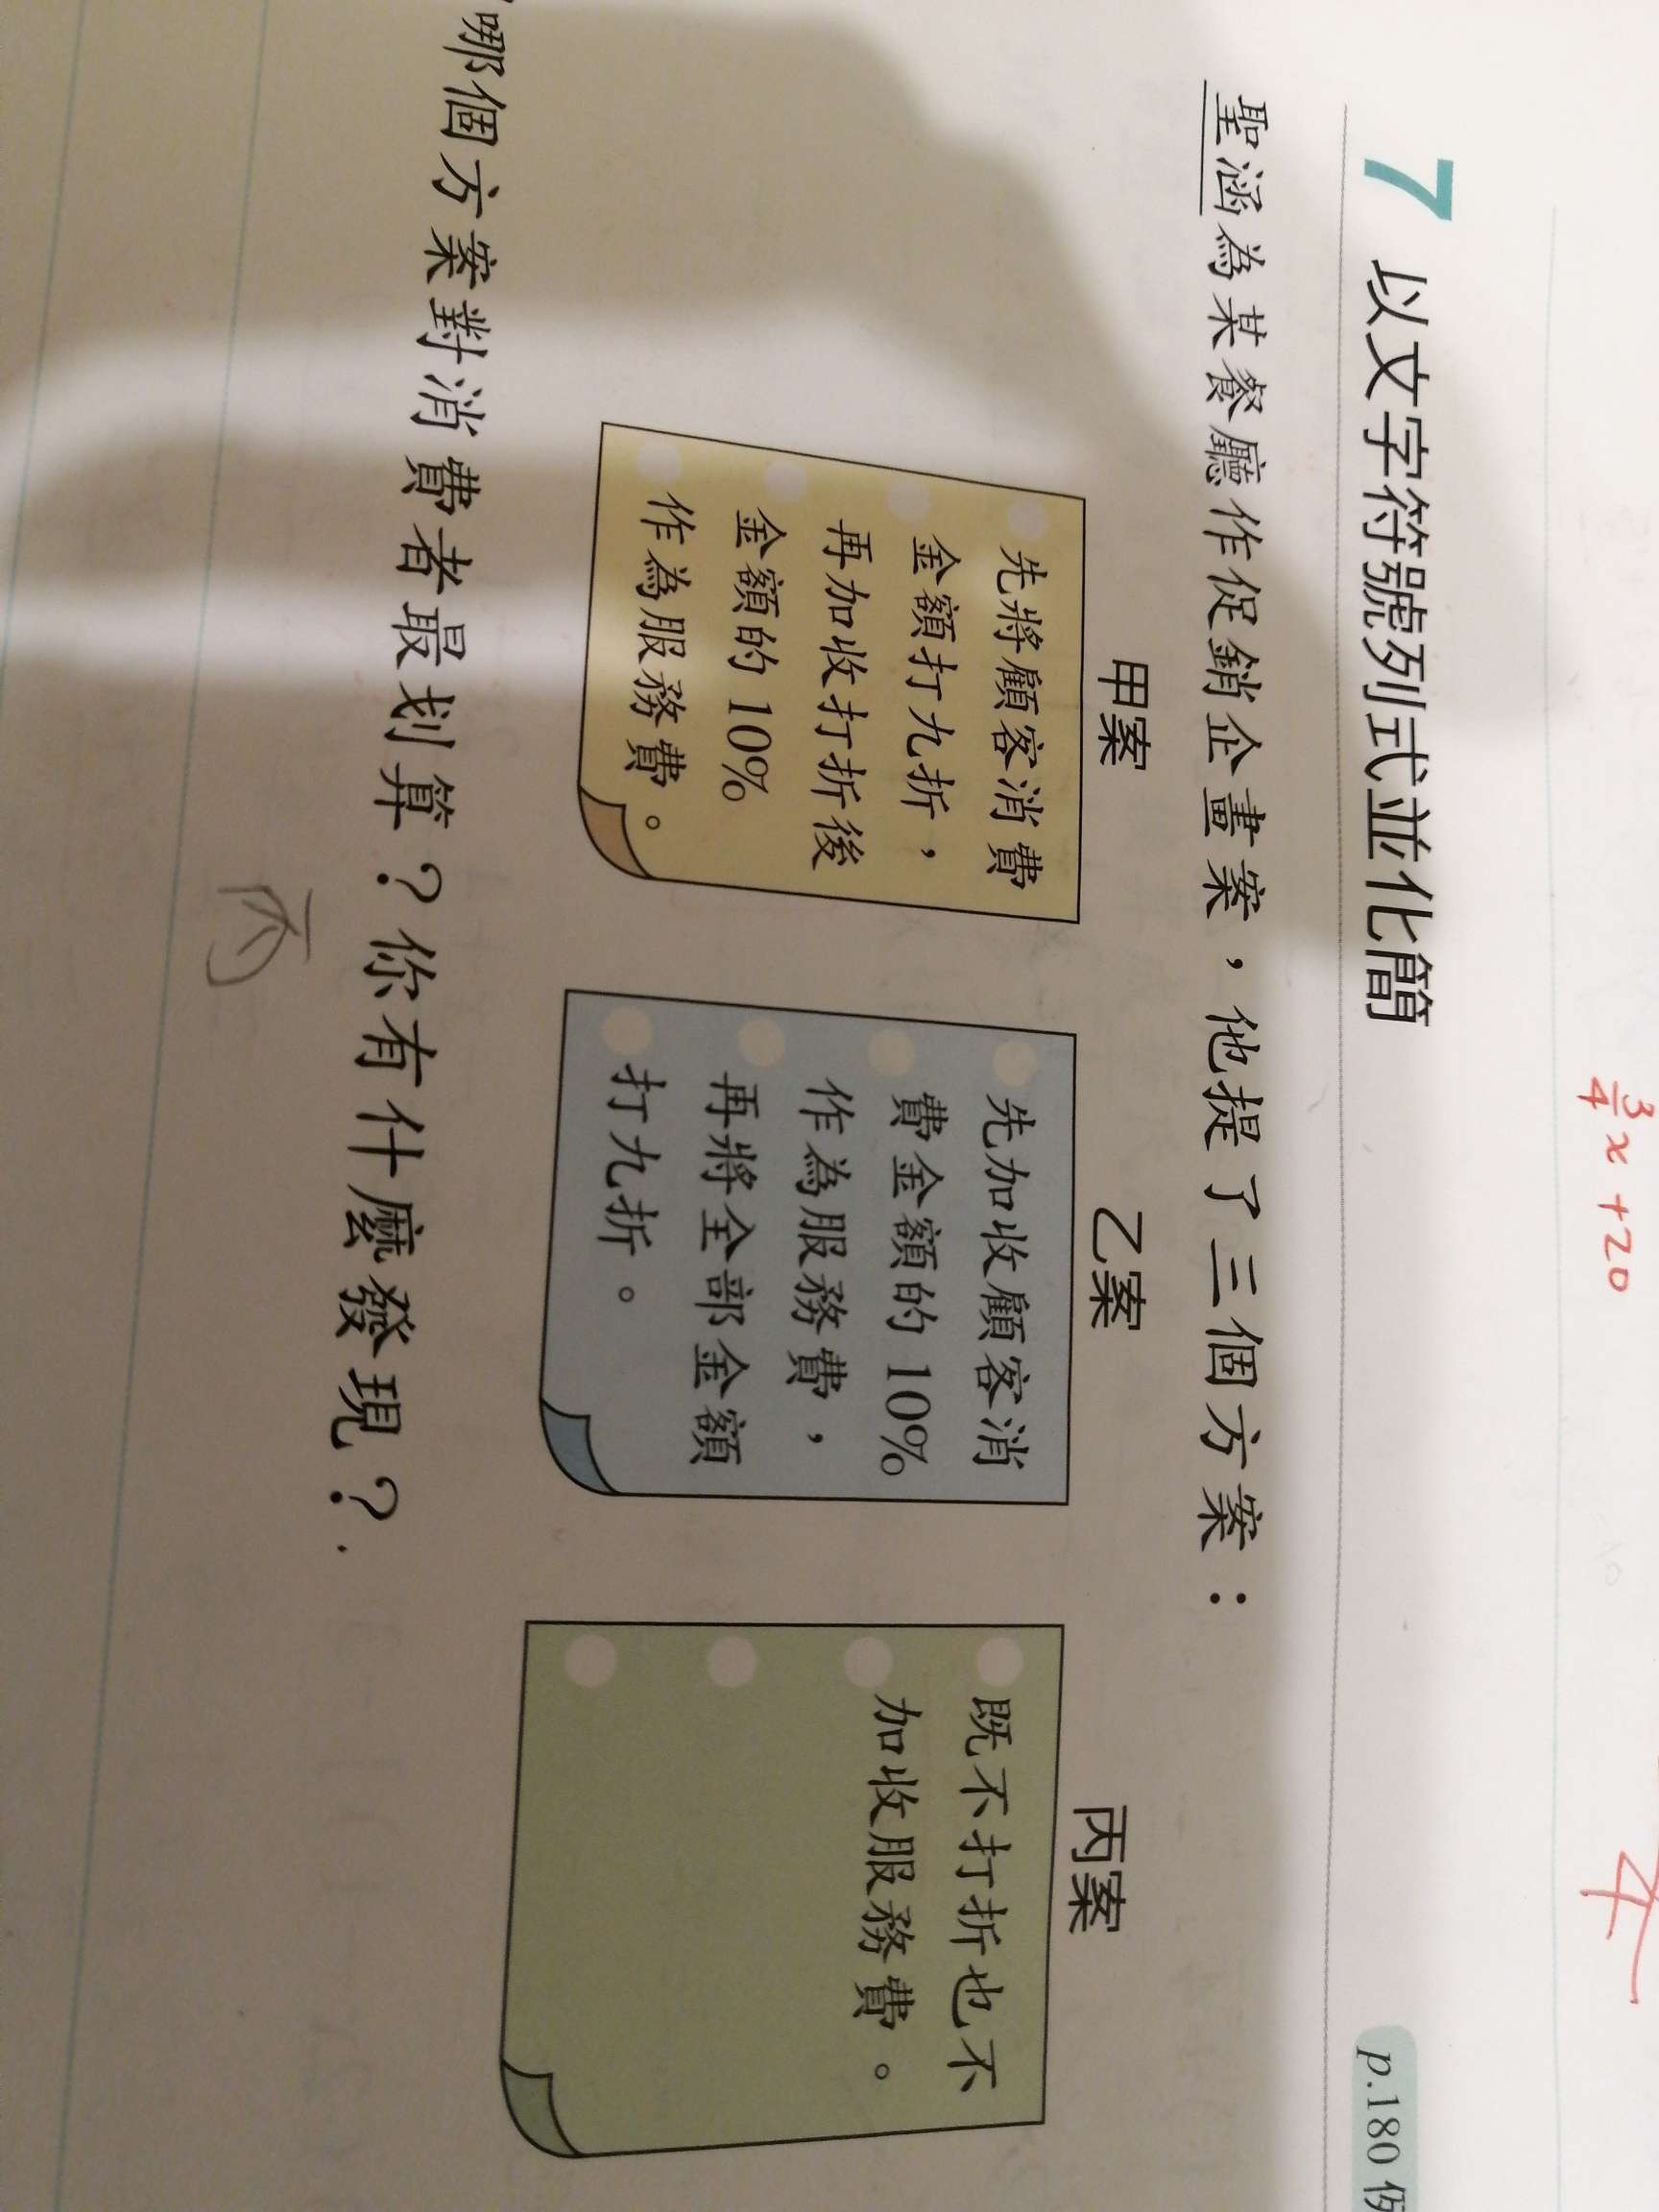 3/4 x + 20
7 以文字符號列式並化簡
p.180 例
聖涵為某餐廳作促銷企畫案，他提了三個方案：
甲案
先將顧客消費
金額打九折，
再加收打折後
金額的 10%
作為服務費。
乙案
先加收顧客消
費金額的 10%
作為服務費，
再將全部金額
打九折。
丙案
既不打折也不
加收服務費。
哪個方案對消費者最划算？你有什麼發現？
丙